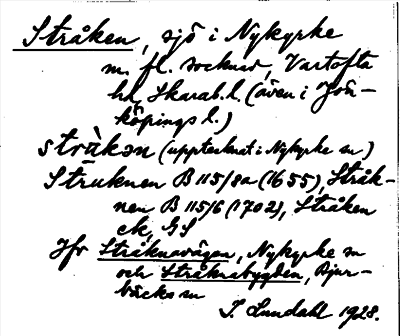 Stråken, sjö i Nykyrke
m. fl. socknar, Vartofta
hd, Skarab.l. (även i Jön-
köpings l.)
strå̀kən (upptecknat i Nykyrke sn)
Struknen B 115/8a (1655), Stråk-
nen B 115/6 (1702), Stråken
ck, GS
Jfr Stråknavägen, Nykyrke sn
och Stråknabygden, Bjur-
bäcks sn
I. Lundahl 1928.